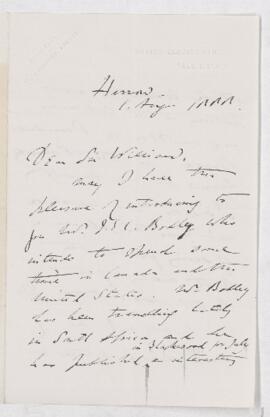 Harrow
1. Aug. 1888.
Dear Sir William,
May I have the
pleasure of introducing to
you Mr. J. E. C. Bodley who
intends to spend some
time in Canada and the
United States. Mr Bodley
has been travelling lately
in South Africa and he
in Blackwood for July
has published an interesting